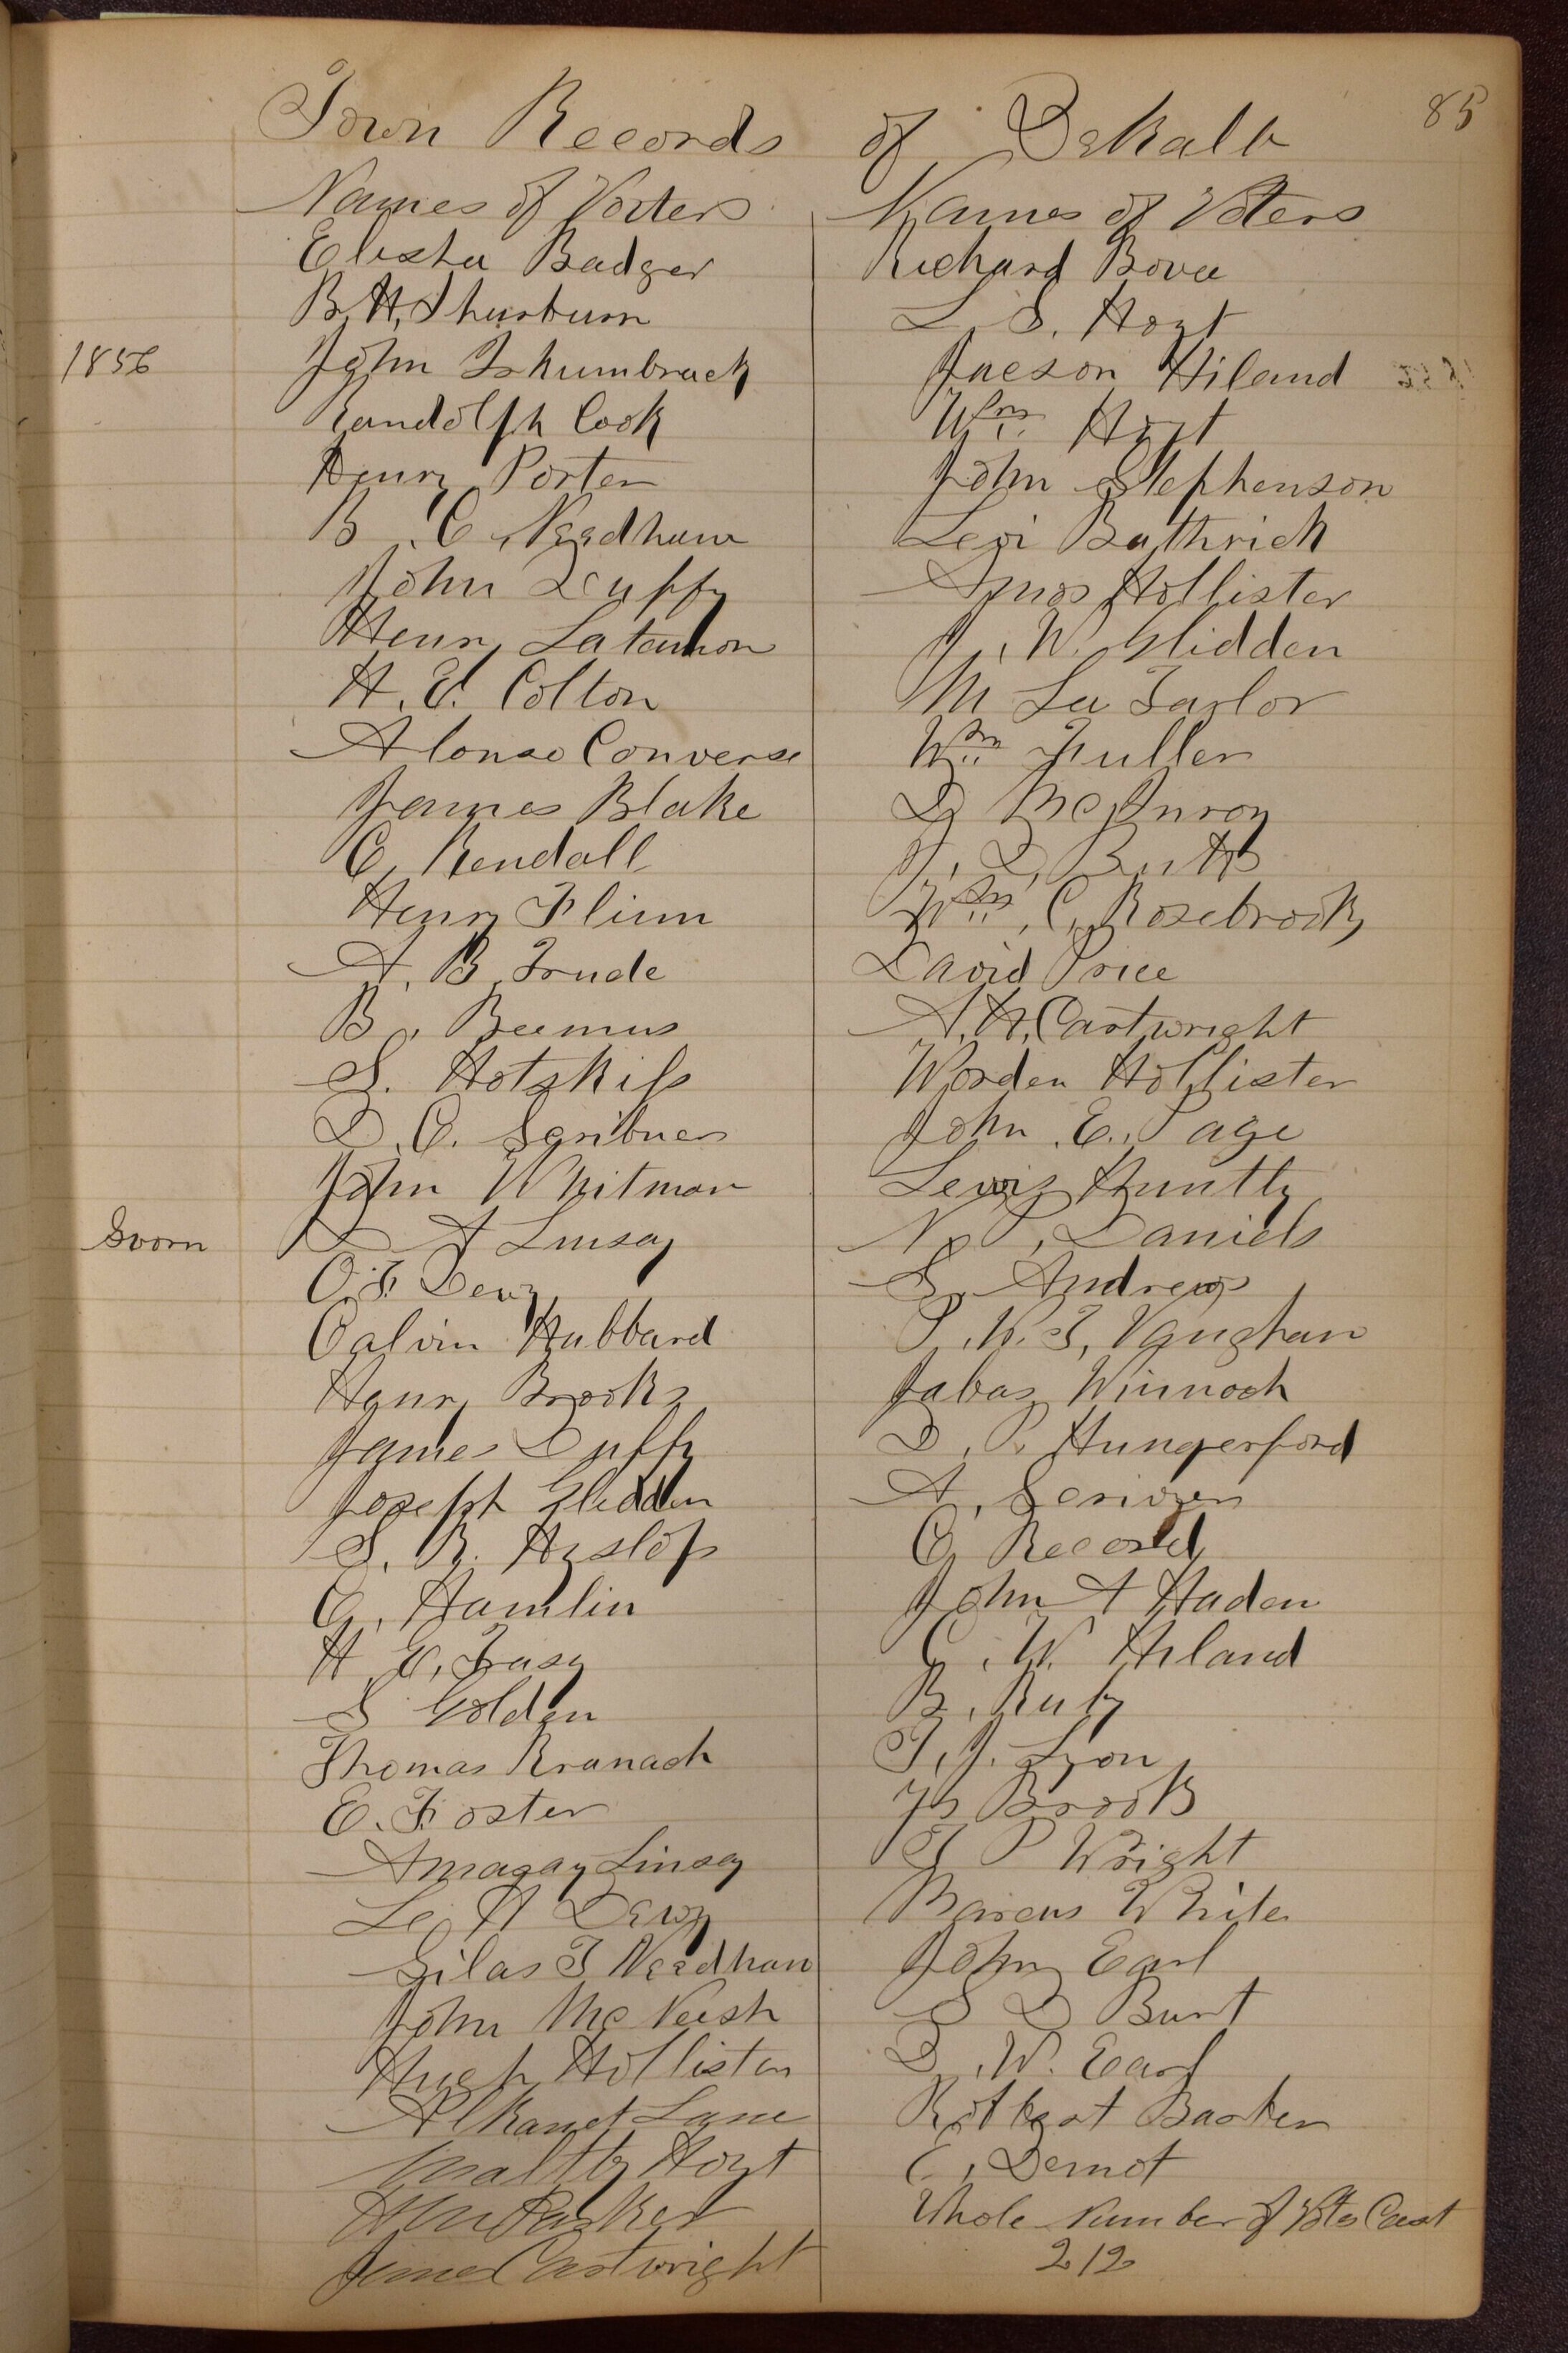 85
Town Records of Dekalb
Names of Voters
Elisha Badger
B. H. Thurburn
1856
John Thumbrack
Randolph Cook
Henry Porter
B. C. Needham
John Duffy
Henry
H. E. Colton
Alonso Converse
James Blake
C. Kendall
Henry Flinn
A. B. Trude
B. Beemus
S.
D. C. Scribner
John Whitman
Sworn
D A Linsay
O. F. Dewy
Calvin Hubbard
Henry Brooks
James Duffy
Joseph Glidden
S. R. Hyslop
C. Hamlin
H. E.
S Golden
Thomas Kranach
E. Foster
Linsey
Le H Dewy
Silas T Needham
John
Hugh Hollister
Lane
Hoyt
Parker
Cartwright
Names of Voters
Richard Bovee
L. S. Hoyt
Jacson Hiland
Wm. Hoyt
John Stephenson
Levi Buthrick
Amos Hollister
J. W. Glidden
M La Taylor
Wm Fuller
D
J. D. Butts
Wm. C. Rosebrook
David Price
A. H. Cartwright
Worden Hollister
John E. Page
Lewis Huntly
N. P. Daniels
S. Andrews
P. W. T. Vaughan
Jabas Winnoch
D. P. Hungerford
A. Scrivzen
C. Record
John A Haden
C. W. Hiland
B. Ruby
T. J. Lyon
Brook
T P Wright
Marcus White
John Earl
S D Burt
D. W. Earl
Robbert Barber
E. Demot
Whole Number of Votes Cast
212